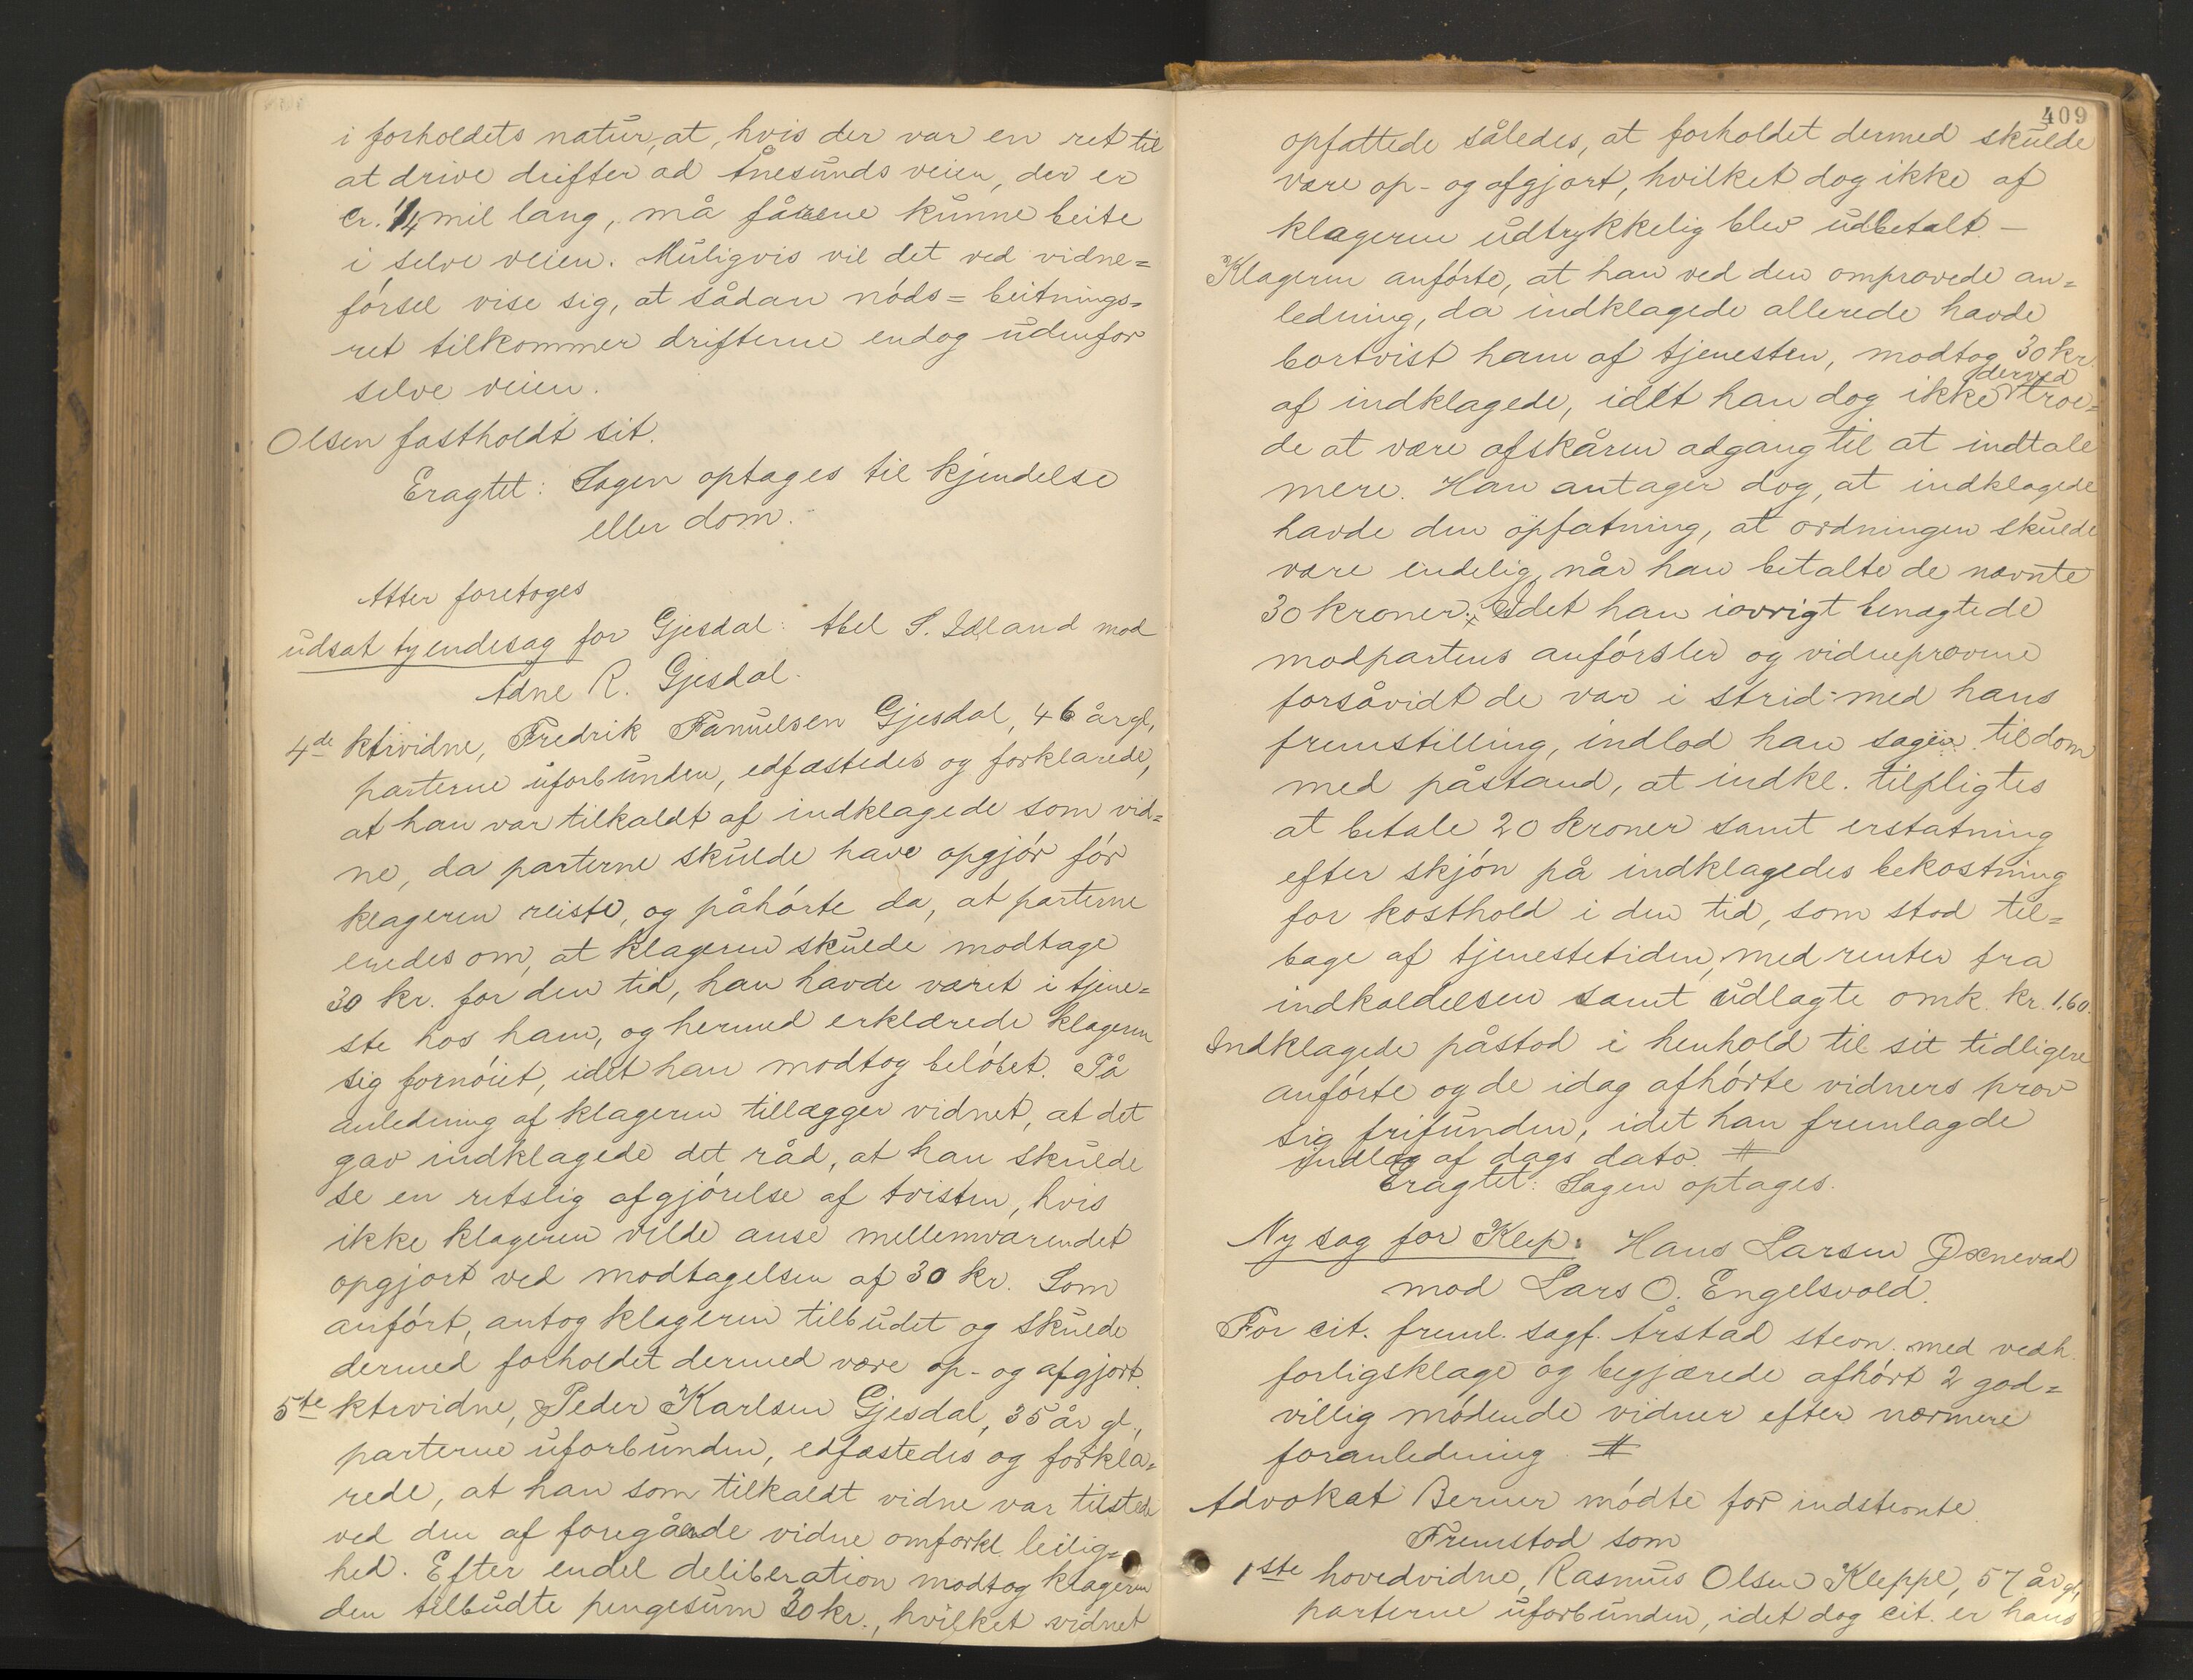 i forholdets natur, at, hvis der var en ret til
at drive drifter ad Ånesunds veien, der er
cr. 1/4 mil lang, må fårene kunne beite
i selve veien. Muligvis vil det ved vidne=
førsel vise sig, at sådan nøds=beitnings=
ret tilkommer drifterne endog udenfor
selve veien.
Olsen fastholdt sit.
Eragtet: Sagen optages til kjendelse
eller dom.
Atter foretoges
udsat tyendesag for Gjesdal: Abel S. Idland mod
Adne R. Gjesdal.
4de ktrvidne, Fredrik Fanuelsen Gjesdal, 46 år gl,
parterne uforbunden, edfæstedes og forklarede,
at han var tilkaldt af indklagede som vid=
ne, da parterne skulde have opgjør før
klageren reiste, og påhørte da, at parterne
enedes om, at klageren skulde modtage
30 kr. for den tid, han havde været i tjene=
ste hos ham, og hermed erklærede klageren
sig fornøiet, idet han modtog beløbet. På
anledning af klageren tillægger vidnet, at det
gav indklagede det råd, at han skulde
se en retslig afgjørelse af tvisten, hvis
ikke klageren vilde anse mellemværendet
opgjort ved modtagelsen af 30 kr. Som
anført, antog klageren tilbudet og skulde
dermed forholdet dermed være op- og afgjort.
5te ktrvidne, Peder Karlsen Gjesdal, 35 år gl.,
parterne uforbunden, edfæstedes og forkla=
rede, at han som tilkaldt vidne var tilstede
ved den af foregående vidne omforkl. leilig=
hed. Efter endel deliberation modtog klageren
den tilbudte pengesum 30 kr., hvilket vidnet
409
opfattede således, at forholdet dermed skulde
være op- og afgjort, hvilket dog ikke af
klageren udtrykkelig blev udbetalt. -
Klageren anførte, at han ved den omprovede an=
ledning, da indklagede allerede havde
bortvist ham af tjenesten, modtog 30 kr.
af indklagede, idet han dog ikke derved troe=
de at være afskåren adgang til at indtale
mere. Han antager dog, at indklagede
havde den opfatning, at ordningen skulde
være endelig, når han betalte de nævnte
30 kroner. Idet han iøvrigt benægtede
modpartens anførsler og vidneprovene
forsåvidt de var i strid med hans
fremstilling, indlod han sagen til dom
med påstand, at indkl. tilpligtes
at betale 20 kroner samt erstatning
efter skjøn på indklagedes bekostning
for kosthold i den tid, som stod til=
bage af tjenestetiden, med renter fra
indkaldelsen samt udlagte omk. kr. 1.60.
Indklagede påstod i henhold til sit tidligere
anførte og de idag afhørte vidners prov
sig frifunden, idet han fremlagde
indlæg af dags dato. #
Eragtet: Sagen optages.
Ny sag for Klep: Hans Larsen Øxnevad
mod Lars O. Engelsvold.
For cit. freml. sagf. Årstad stevn. med vedh.
forligsklage og begjærede afhørt 2 god=
villig mødende vidner efter nærmere
foranledning #
Advokat Berner mødte for indstevnte.
Fremstod som
1ste hovedvidne, Rasmus Olsen Kleppe, 57 år gl,
parterne uforbunden, idet dog cit. er hans